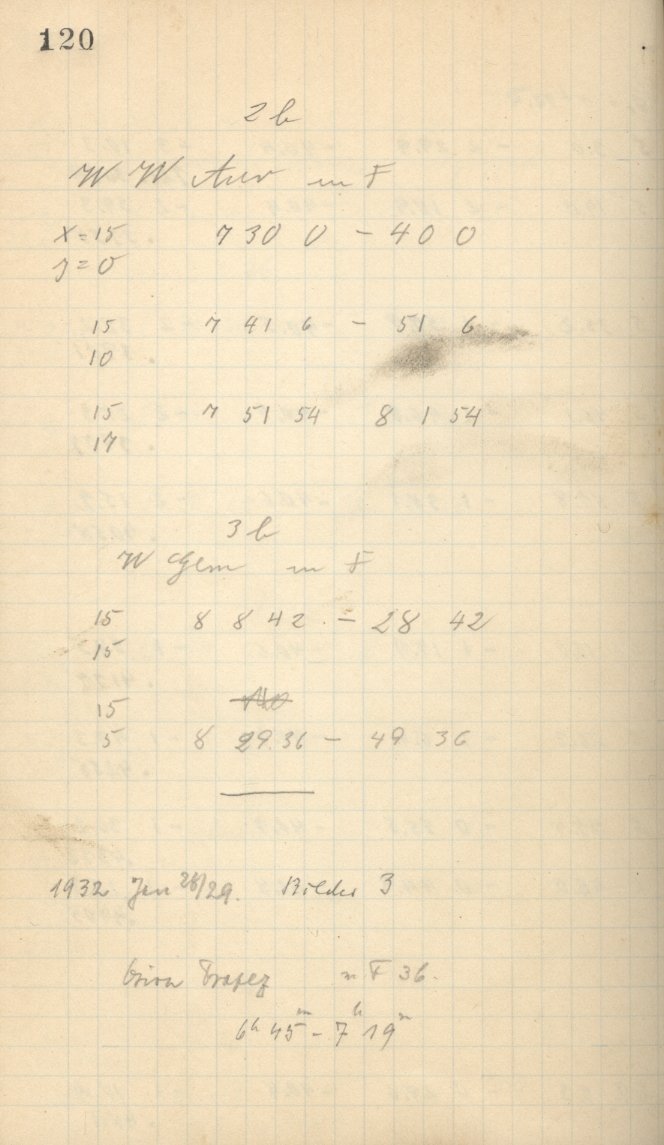 120
2 b
W W Aur m F
x=15 7 30 0 - 40 0
y=0
15 7 41 6 - 51 6
10
15 7 51 54 8 1 54
17
3 b
W Gem m F
15 8 8 42 - 28 42
15
15
5 8 29.36 - 49 36
1932 Jan 28/29. Bilder 3
Orion Trapez m F 36.
6h 45m - 7h 19m